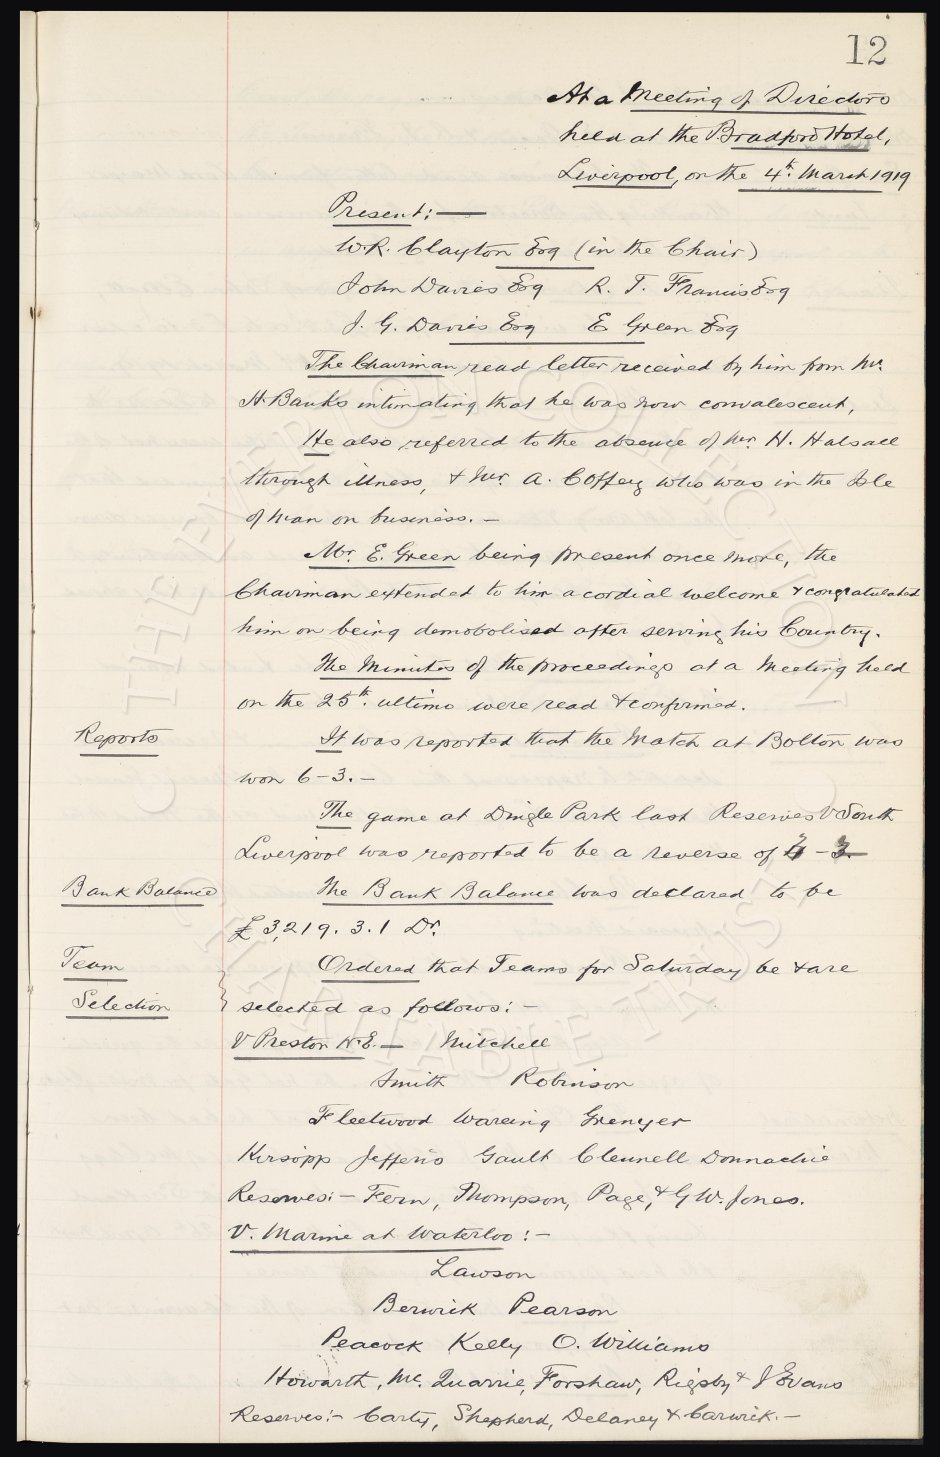 12
At a Meeting of Directors
held at the Bradford Hotel,
Liverpool, on the 4th. March 1919
Present:—
W.R. Clayton Esq (in the Chair)
John Davies Esq R. T. Francis Esq
J. G. Davies Esq E Green Esq
The Chairman read letter received by him from Mr.
H. Banks intimating that he was now convalescent,
He also referred to the absence of Mr. H. Halsall
through illness, & Mr. A. Coffey who was in the Isle
of Man on business. —
Mr. E. Green being present once more, the
Chairman extended to him a cordial welcome & congratulated
him on being demobolised after serving his Country.
The Minutes of the proceedings at a Meeting held
on the 25th. ultimo were read & confirmed.
Reports
It was reported that the Match at Bolton was
won 6-3. —
The game at Dingle Park last Reserves V South
Liverpool was reported to be a reverse of
Bank Balance
The Bank Balance was declared to be
£3,219. 3. 1 Dr.
Team
Selection
Ordered that Teams for Saturday be & are
selected as follows: —
V Preston N.E. — Mitchell
Smith Robinson
Fleetwood Wareing Grenyer
Kirsopp Jefferis Gault Clennell Donnachie
Reserves: — Fern, Thompson, Page, & G W. Jones.
V. Marine at Waterloo: —
Lawson
Berwick Pearson
Peacock Kelly O. Williams
Howarth, Mc. Quarrie, Forshaw, Rigsby & J Evans
Reserves: — Carty, Shepherd, Delaney & Carwick. —